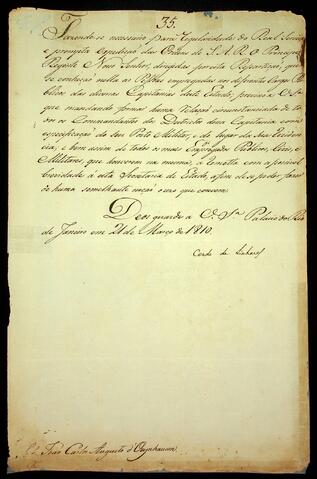 35.
Fazendo-se necessario para regularidade do Real Serviço
e prompta expedição das Ordens de S. A. R. O Principe
Regente Nosso Senhor, dirigidas por esta Repartição, que
se conheção nella as Pessoas empregadas nos differentes Cargos Pu-
blicos das diversas Capitanias deste Estado; previno a V. Sª
que mandando formar huma Relação circunstanciada de to-
dos os Commandantes dos Districtos dessa Capitania com
especificação do seu Posto Militar, e do lugar da sua Residen-
cia, e bem assim de todos os mais Empregados Publicos, Civis, e
Militares, que houverem na mesma, a remetta com a possivel
brevidade a esta Secretaria de Estado, afim de se poder fazer
de huma semelhante noção o uso que convem.
Deos guarde a V. Sª Palacio do Rio
de Janeiro em 21 de Março de 1810.
Conde de Linhares
Sr. João Carlos Augusto d'Oeynhausen